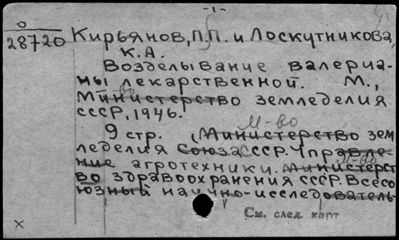 -1-
0
28720 Кирьянов, П.П. и Лоскутникова,
К.А.
Возделывание валериа-
ны лекарственной. М.,
Министерство земледелия
СССР, 1946.
М-во
9 стр. (Министерство зем
леделия Союза ССР. Управле-
ние агротехники. Министерст
во здравоохранения СССР. Всесо
юзный научно-исследователь-
См. след. карт
х